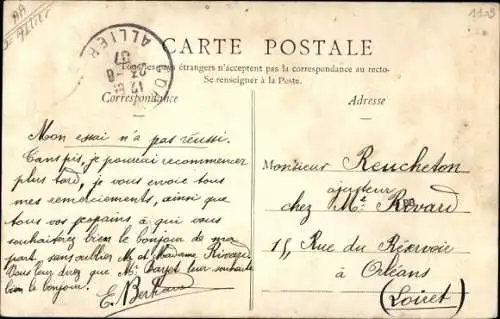 AA
3 Allier
1123
ALLIER
12
23-8
07
CARTE POSTALE
Tous les pays étrangers n'acceptent pas la correspondance au recto-
Se renseigner à la Poste.
Correspondance
Adresse
Mon essai n'a pas réussi.
Tans pis, je pourrai recommencer
plus tard, je vous envoie tous
mes remerciements, ainsi que
tous vos copains à qui vous
souhaiterez bien le bonjour de ma
part, sans oublier M. et Madame Rivard
Vous leur direz que Mr. Bayet leur souhaite
bien le bonjour.
E. Bertrand
Monsieur Reucheton
ajusteur
chez Mr. Rivard
15, Rue du Réservoir
à Orléans
(Loiret)